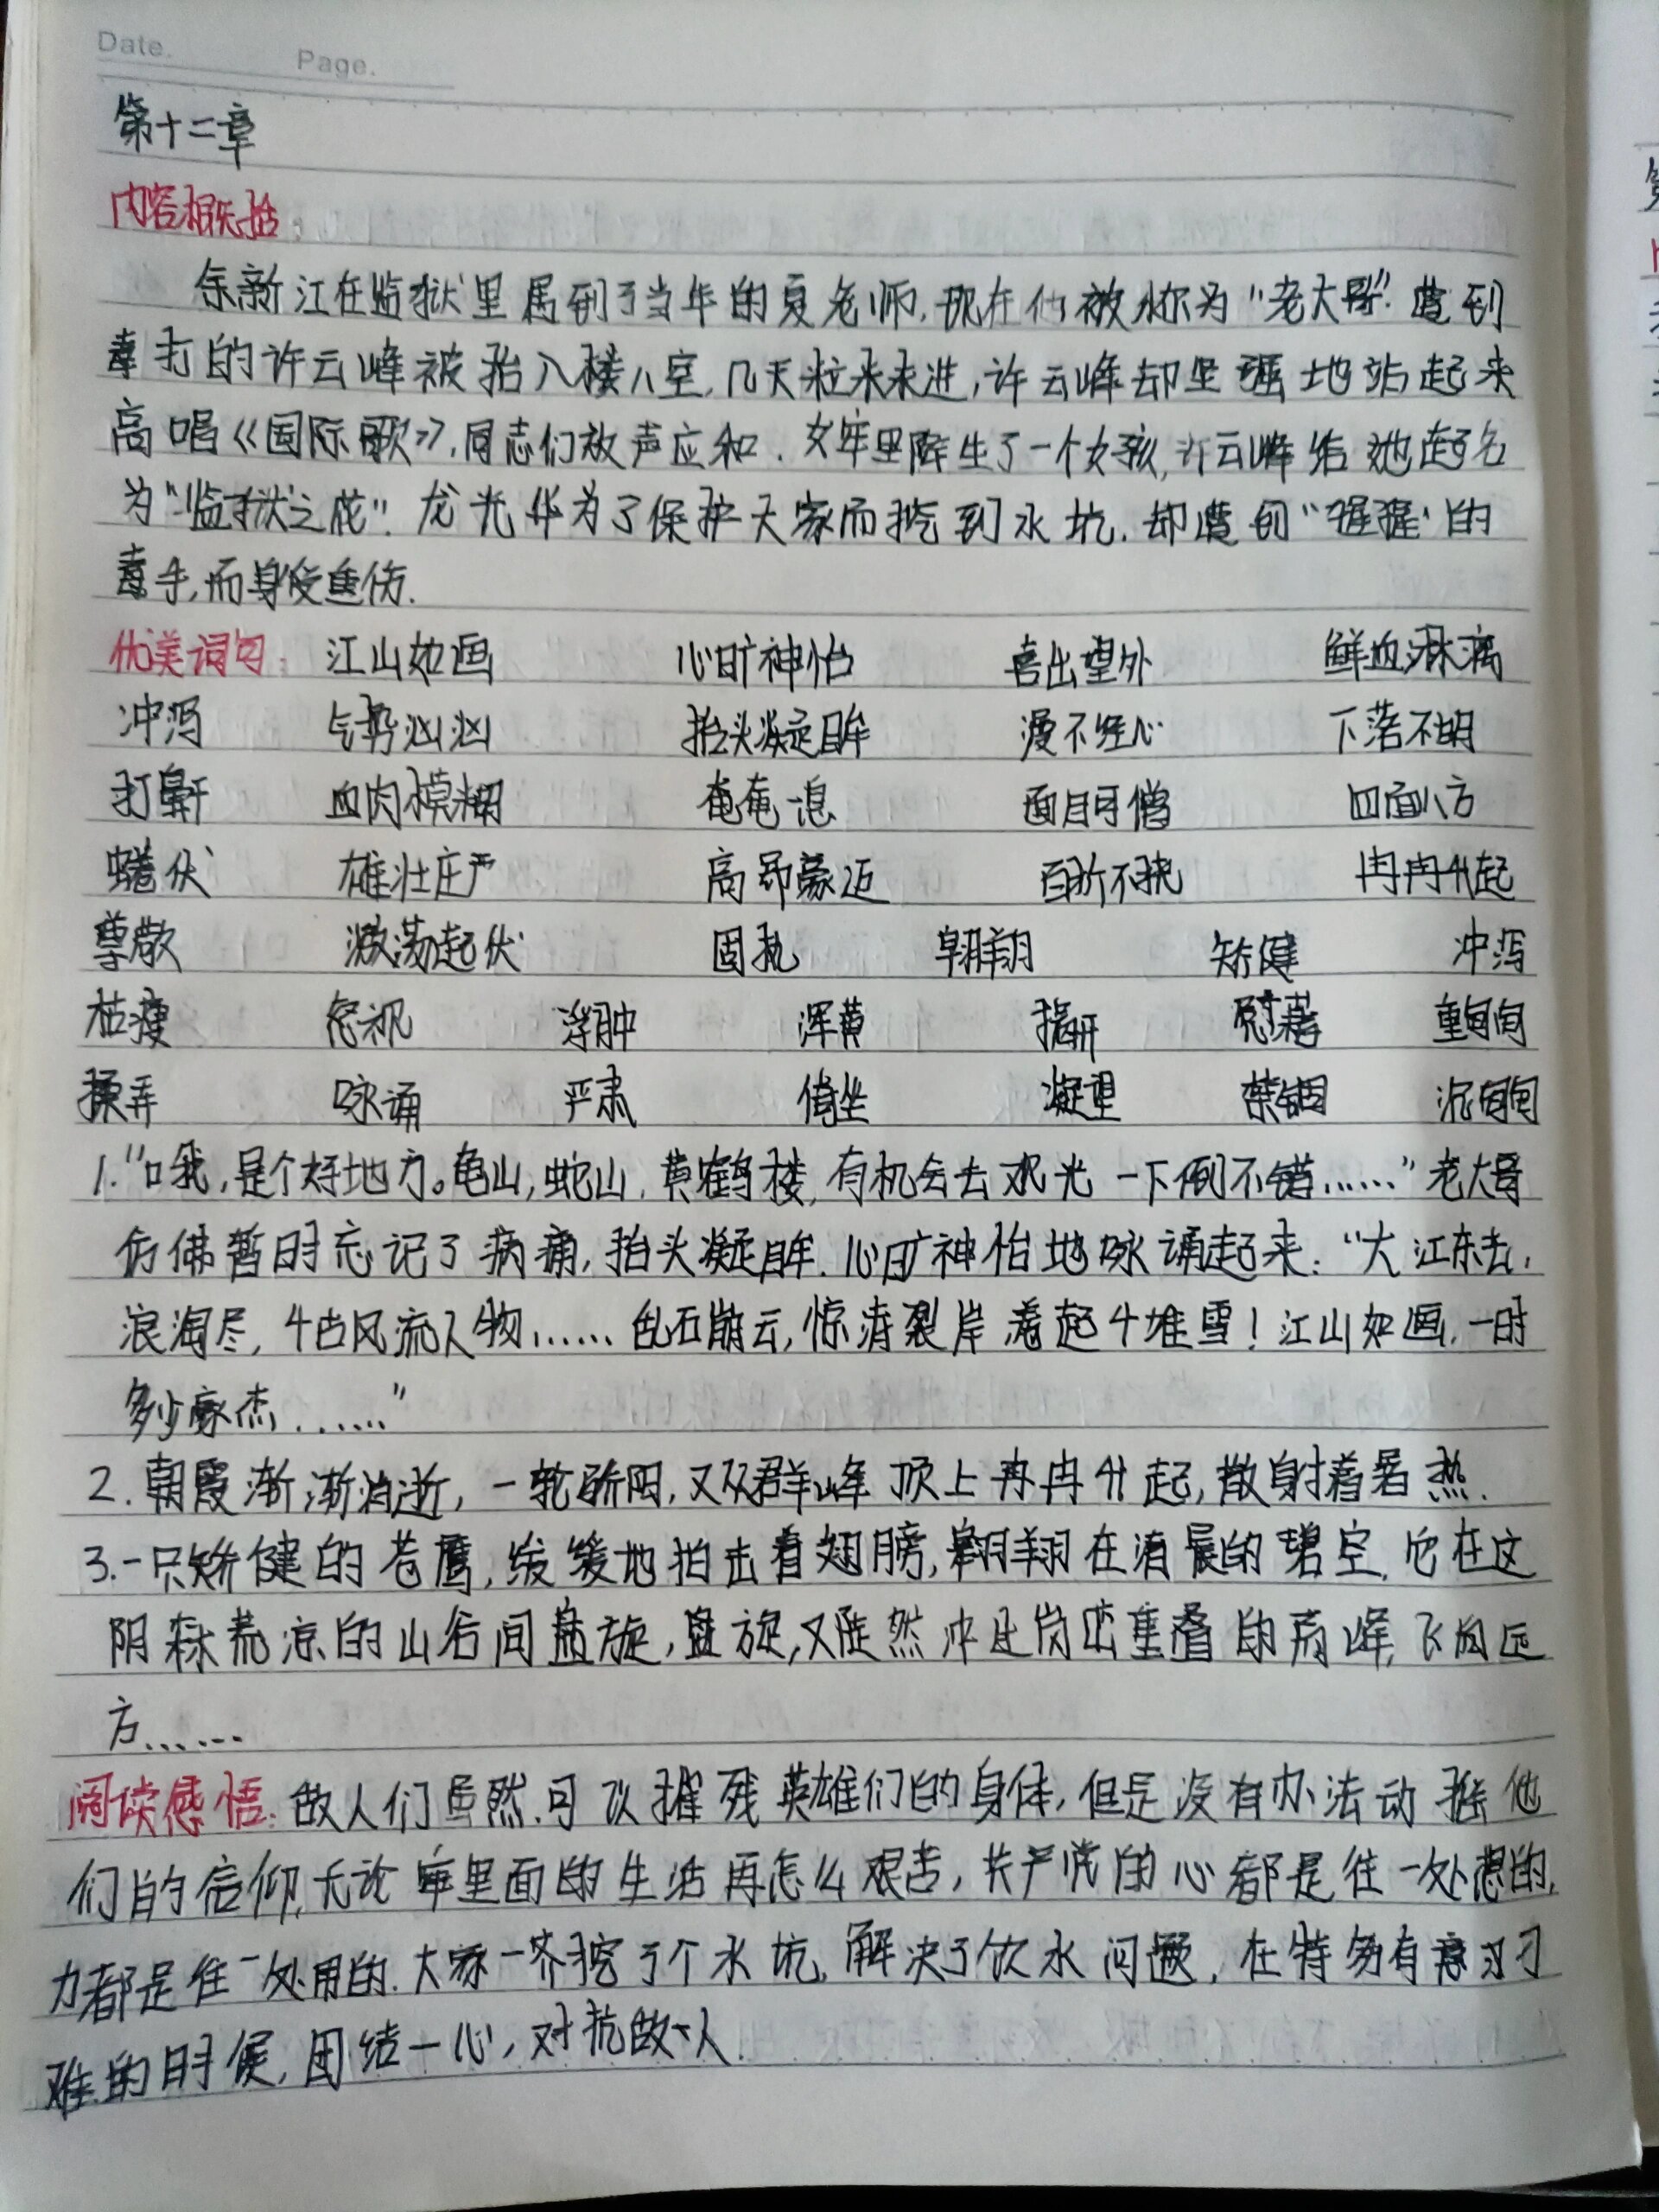 Date.
Page.
第十二章
内容概括:
余新江在监狱里属到了当年的夏老师,现在他被称为"老大哥".遭到
毒打的许云峰被抬入楼八室,几天粒米未进,许云峰却坚强地站起来
高唱《国际歌》,同志们放声应和.女牢里降生了一个女孩,许云峰给她起名
为"监狱之花".龙光华为了保护大家而挖到水坑,却遭到"猩猩"的
毒手,而身受重伤.
优美词句: 江山如画 心旷神怡 喜出望外 鲜血淋漓
冲泻 气势汹汹 抬头凝眸 漫不经心 下落不明
打鼾 血肉模糊 奄奄一息 面目可憎 四面八方
蜷伏 雄壮庄严 高昂豪迈 百折不挠 冉冉升起
尊敬 激荡起伏 固执 翱翔 矫健 冲泻
枯瘦 忽视 浮肿 浑黄 掀开 慰藉 重甸甸
操弄 咏诵 严肃 倚坐 凝望 禁锢 沉甸甸
1."哦,是个好地方。龟山,蛇山,黄鹤楼,有机会去观光一下倒不错……"老大哥
仿佛暂时忘记了病痛,抬头凝眸.心旷神怡地咏诵起来:"大江东去,
浪淘尽,千古风流人物……乱石崩云,惊涛裂岸卷起千堆雪!江山如画,一时
多少豪杰……"
2.朝霞渐渐消逝,一轮骄阳,又从群峰顶上冉冉升起,散射着暑热.
3.一只矫健的苍鹰,缓缓地拍击着翅膀,翱翔在清晨的碧空.它在这
阴森荒凉的山谷间盘旋,盘旋,又陡然冲出岗峦重叠的高峰,飞向远
方……
阅读感悟:敌人们虽然可以摧残英雄们的身体,但是没有办法动摇他
们的信仰,无论牢里面的生活再怎么艰苦,共产党的心都是往一处想的,
力都是往一处用的.大家一齐挖了个水坑,解决了饮水问题,在特务有意刁
难的时候,团结一心,对抗敌人.